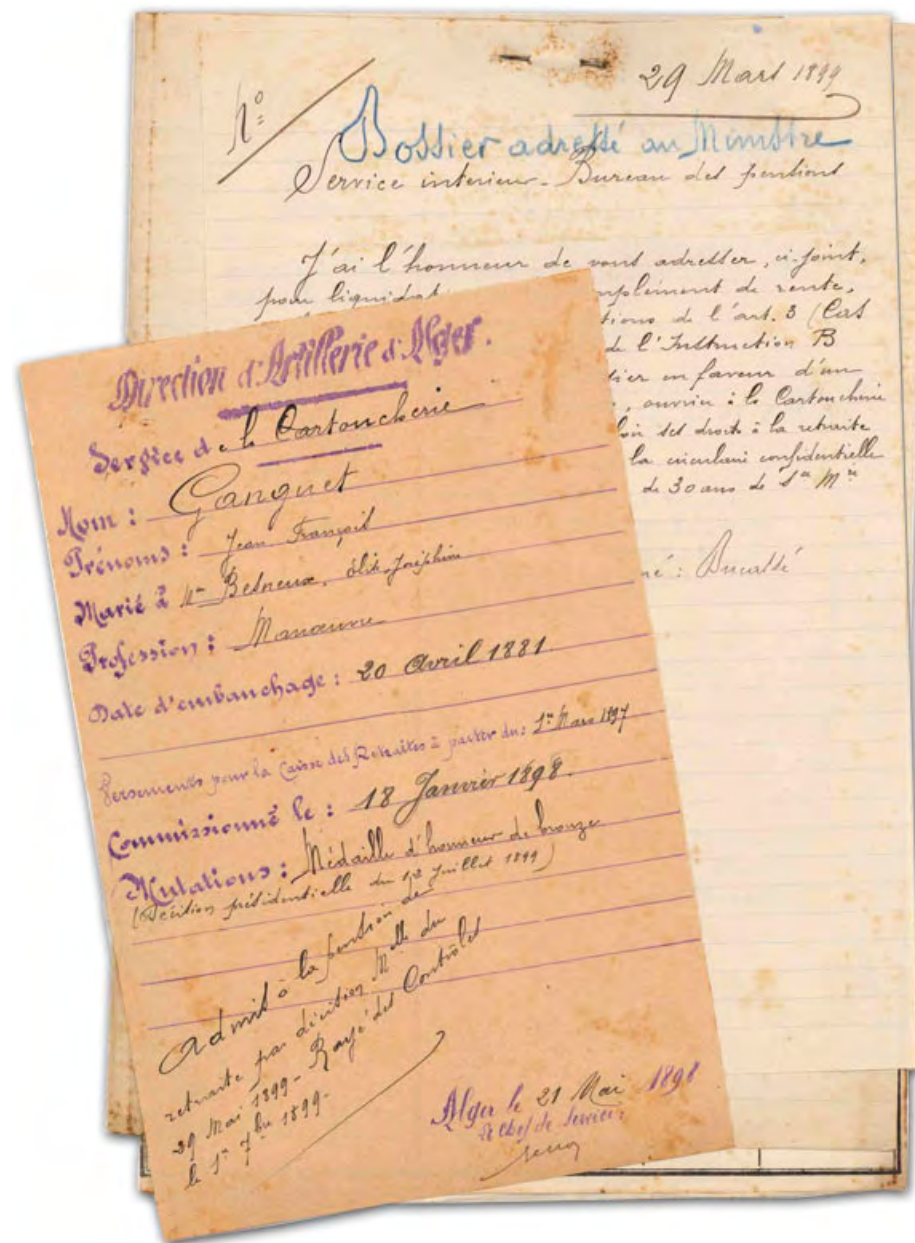 29 Mars 1899
Nº
Dossier adressé au Ministre
Service intérieur - Bureau des pensions
J'ai l'honneur de vous adresser, ci-joint,
pour liquidat mplément de rente,
tions de l'art. 3 (Cas
de l'Instruction B
sier en faveur d'un
, ouvrier à la Cartoucherie
loir ses droits à la retraite
la circulaire confidentielle
de 30 ans de
né : Ducassé
Direction d'Artillerie d'Alger.
Service de la Cartoucherie
Nom : Ganguet
Prénoms : Jean François
Marié à Mme Joséphine
Profession : Manœuvre
Date d'embauchage : 20 Avril 1881
Versements pour la Caisse des Retraites à partir du : 1er Mars 1897
Commissionné le : 18 Janvier 1898.
Mutations : Médaille d'honneur de bronze
(Décision présidentielle du Juillet 1899)
Admis à la pension de
retraite par décision Mlle du
29 Mai 1899 - Rayé des Contrôles
le 1er 7bre 1899 -
Alger le 21 Mai 1898
Le Chef de Service :